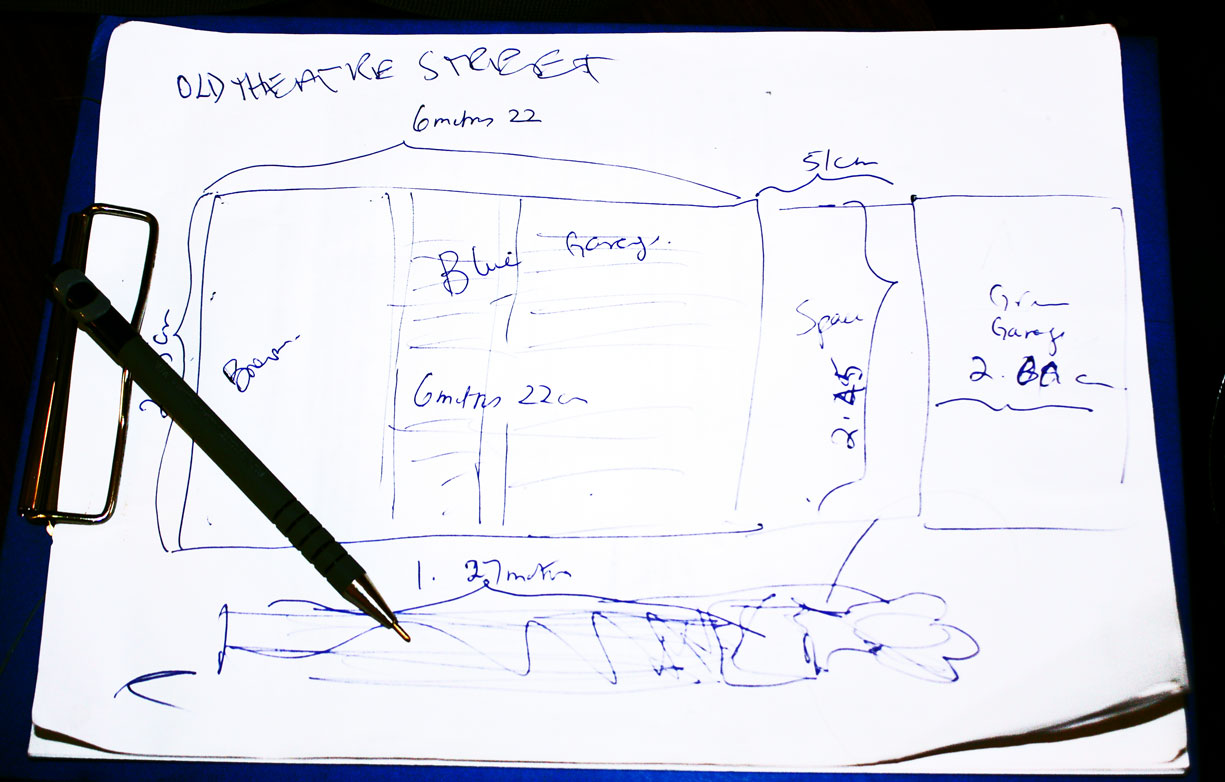 OLD THEATRE STREET
6 metres 22
51cm
Blue Garage.
Brown.
Space
2.45
Garage
6 metres 22cm
1. 27 metres